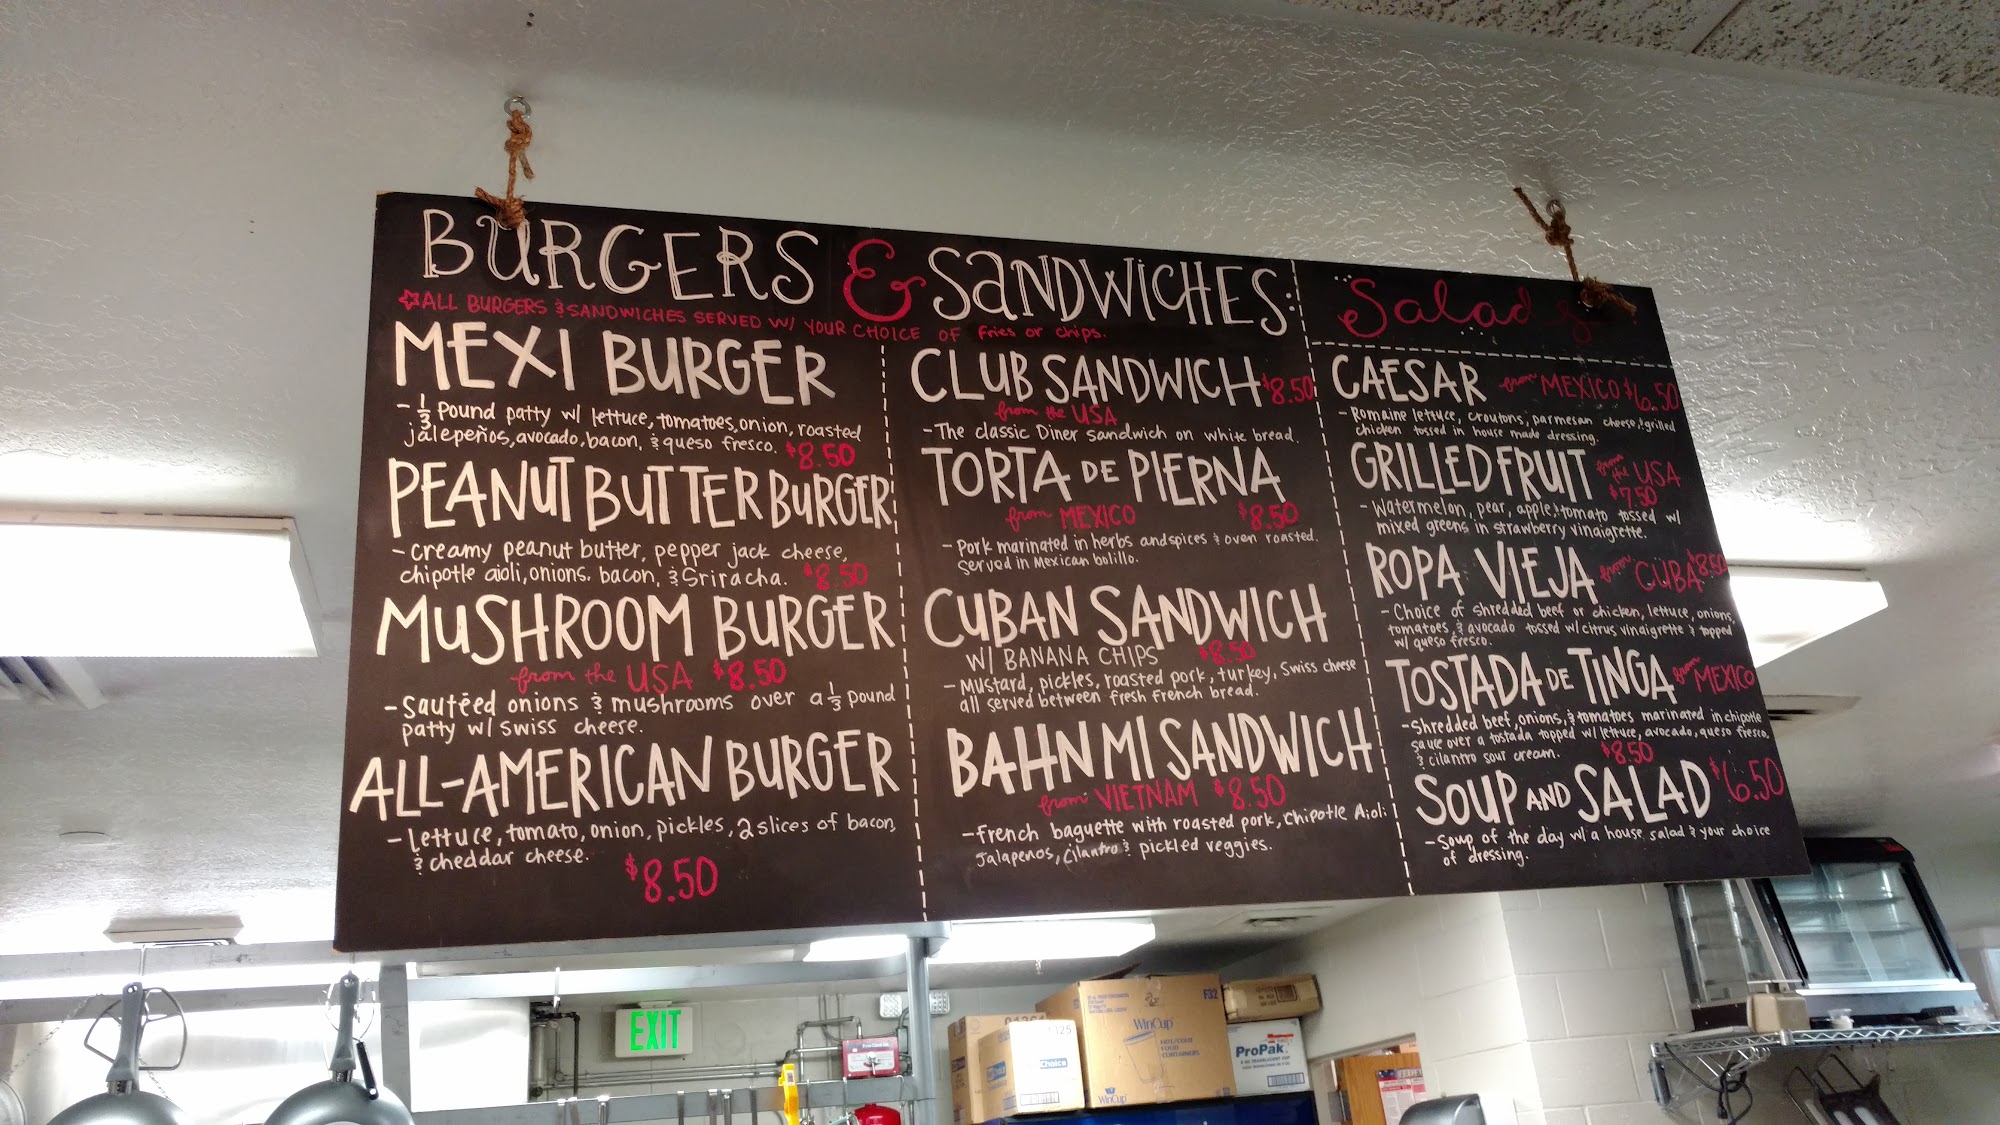 BURGERS & SANDWICHES:
ALL BURGERS & SANDWICHES SERVED W/ YOUR CHOICE OF fries or chips.
MEXI BURGER
- 1/3 pound patty w/ lettuce, tomatoes, onion, roasted
jalepeños, avocado, bacon, & queso fresco. $8.50
PEANUT BUTTER BURGER
- creamy peanut butter, pepper jack cheese,
chipotle aioli, onions. bacon, & Sriracha. $8.50
MUSHROOM BURGER
from the USA $8.50
- Sautéed onions & mushrooms over a 1/3 pound
patty w/ Swiss cheese.
ALL-AMERICAN BURGER
- lettuce, tomato, onion, pickles, 2 slices of bacon,
& cheddar cheese.
$8.50
CLUB SANDWICH $8.50
from the USA
- The classic Diner sandwich on white bread.
TORTA DE PIERNA
from MEXICO $8.50
- Pork marinated in herbs and spices & oven roasted.
served in Mexican bolillo.
CUBAN SANDWICH
W/ BANANA CHIPS $8.50
- Mustard, pickles, roasted pork, turkey, Swiss cheese
all served between fresh French bread.
BAHN MI SANDWICH
from VIETNAM $8.50
- French baguette with roasted pork, Chipotle Aioli
Jalapenos, Cilantro & pickled veggies.
Salads
CAESAR from MEXICO $6.50
- Romaine lettuce, croutons, parmesan cheese, & grilled
chicken tossed in house made dressing.
GRILLED FRUIT from the USA
$7.50
- Watermelon, pear, apple, & tomato tossed w/
mixed greens in strawberry vinaigrette.
ROPA VIEJA from CUBA $8.50
- Choice of shredded beef or chicken, lettuce, onions,
tomatoes, & avocado tossed w/ citrus vinaigrette & topped
w/ queso fresco.
TOSTADA DE TINGA from MEXICO
- Shredded beef, onions, & tomatoes marinated in chipotle
sauce over a tostada topped w/ lettuce, avocado, queso fresco,
& cilantro sour cream. $8.50
SOUP AND SALAD $6.50
- Soup of the day w/ a house salad & your choice
of dressing.
EXIT
Choice
F32
WinCup
HOT/COLD
FOOD
CONTAINERS
WinCup
ProPak